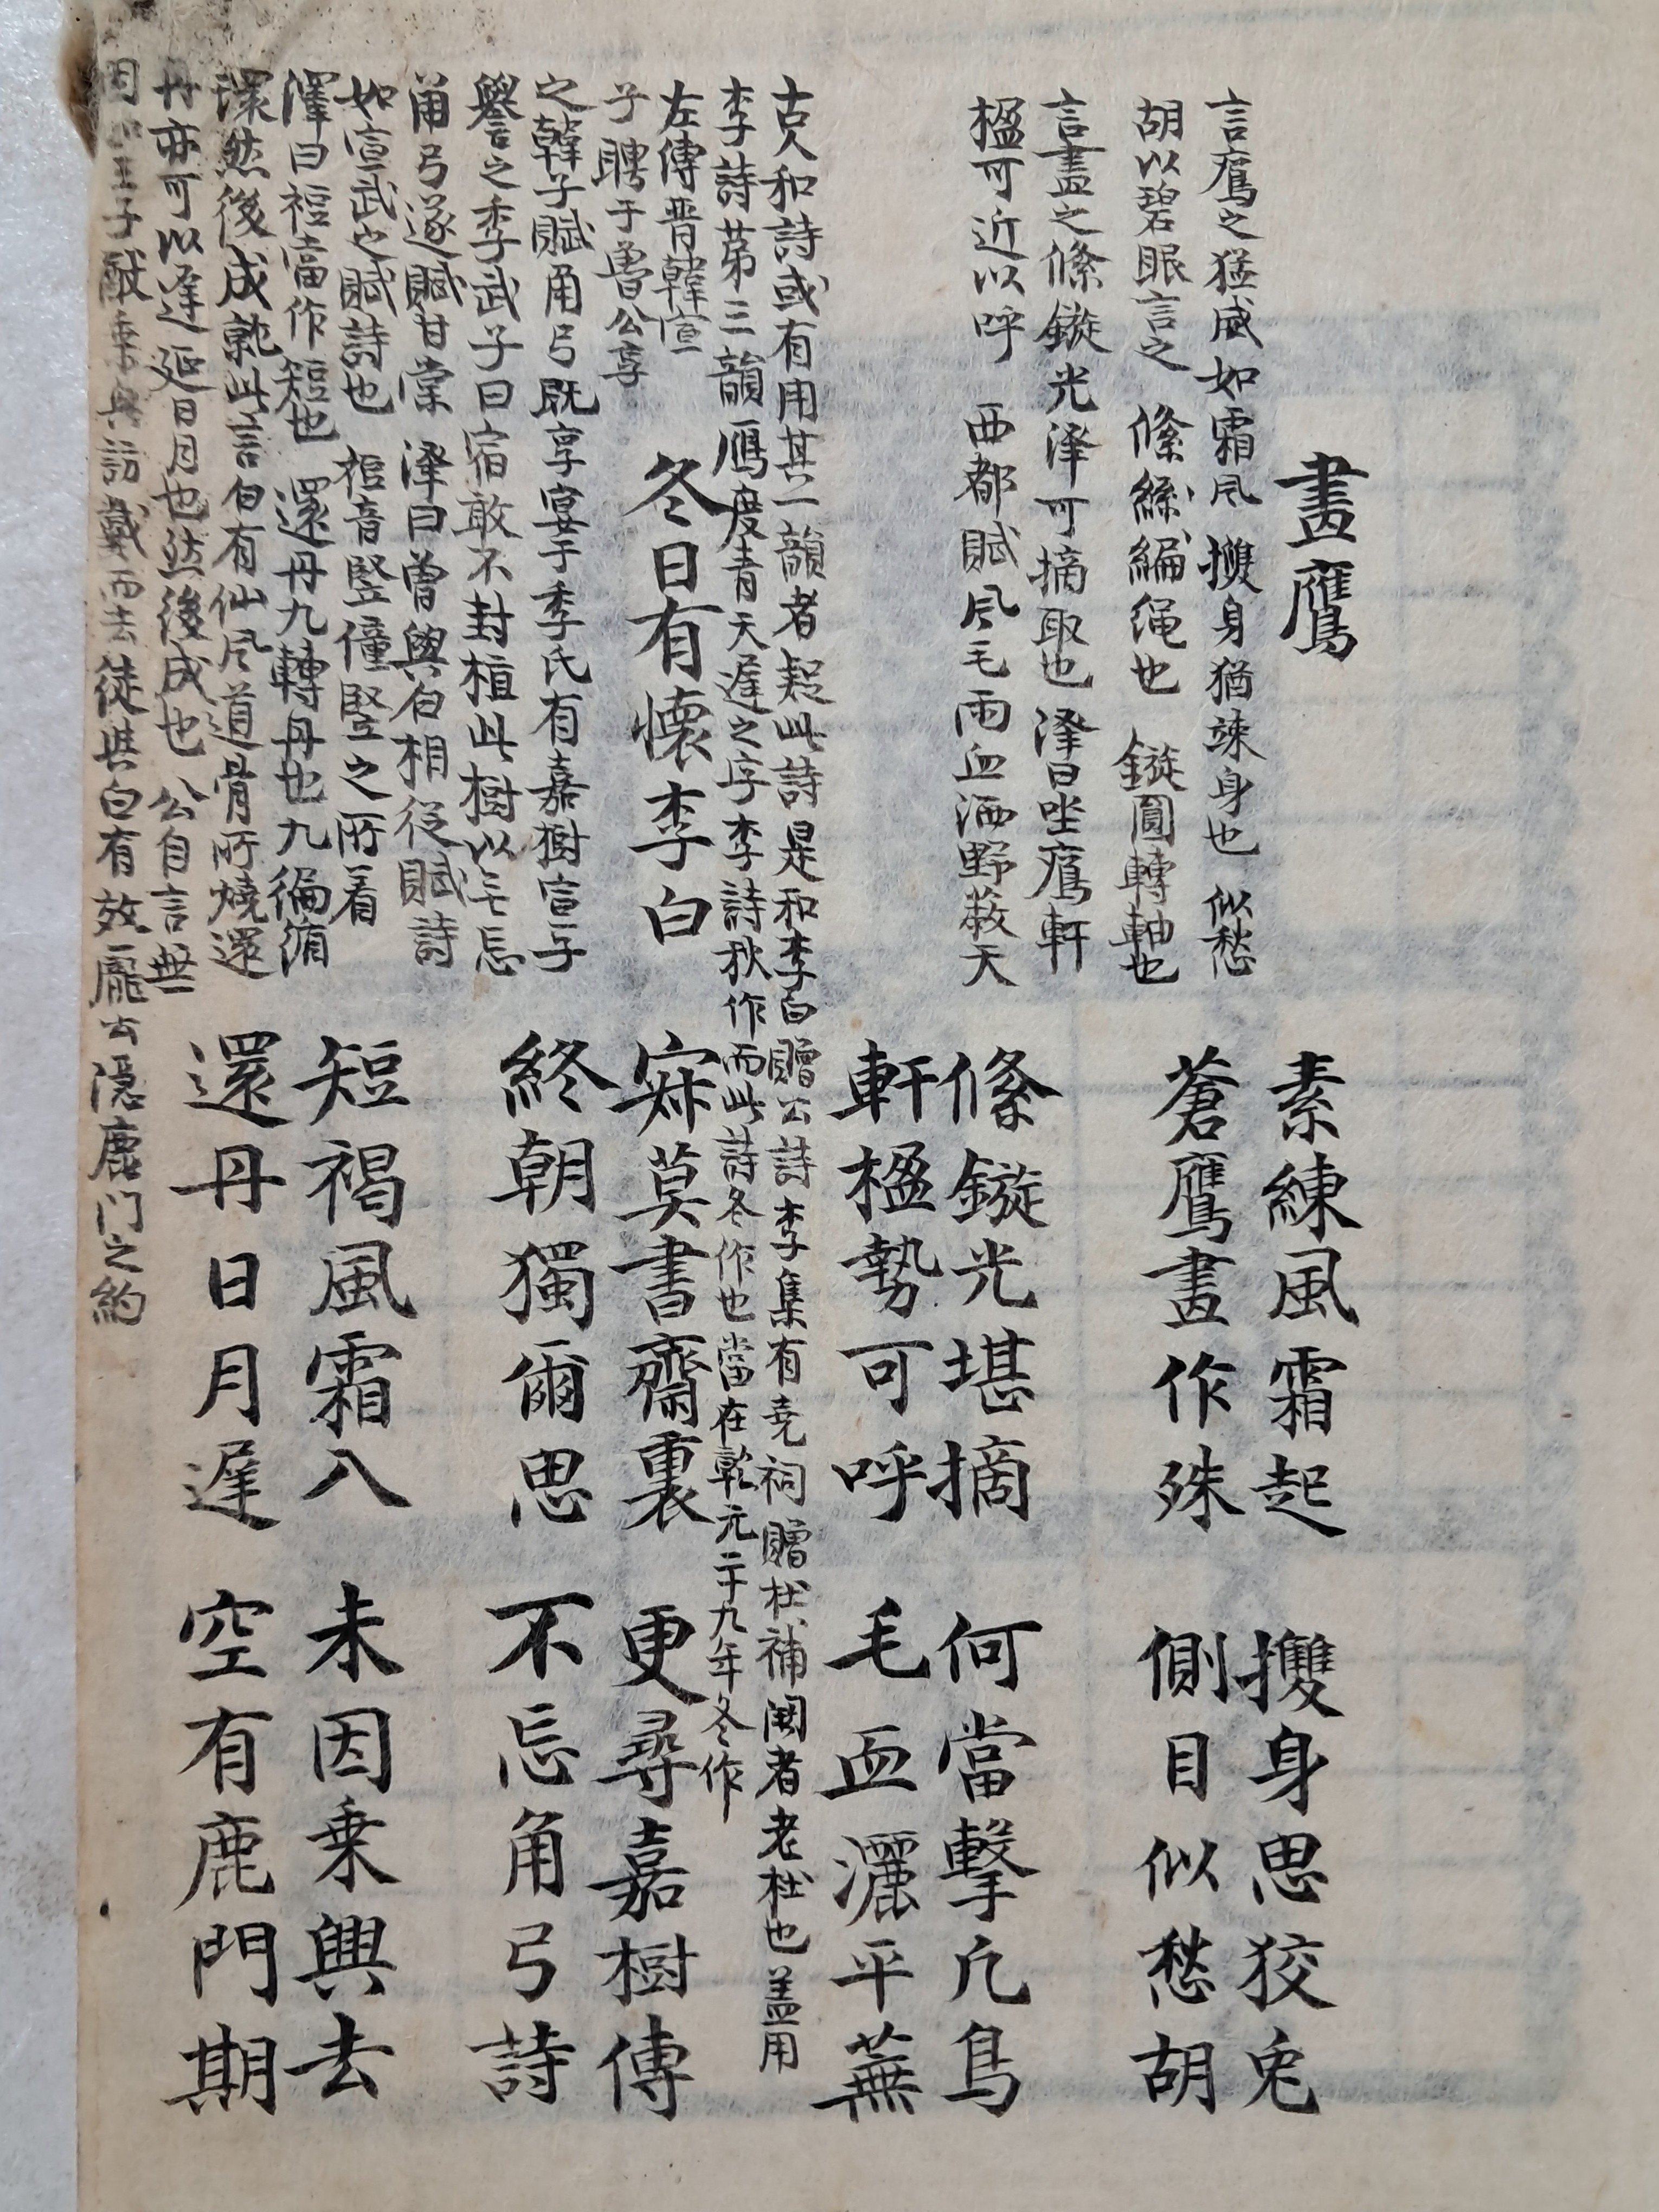 畫鷹
言鷹之猛威如霜風 㩳身猶竦身也 似愁
胡以碧眼言之 絛絲編绳也 鏇圓轉軸也
言畫之絛鏇光泽可摘取也 泽曰坐鷹軒
楹可近以呼 西都賦風毛雨血洒野蔽天
素練風霜起 㩳身思狡兔
蒼鷹畫作殊 側目似愁胡
絛鏇光堪摘 何當擊凡鳥
軒楹勢可呼 毛血灑平蕪
古人和詩或有用其一韻者疑此詩是和李白贈公詩李集有尭祠贈杜補闕者老杜也盖用
李詩苐三韻鴈度青天遅之字李詩秋作而此詩冬作也當在乾元二十九年冬作
冬日有懷李白
左傳晋韓宣
子聘于魯公享
之韓子賦角弓既享宴于季氏有嘉樹宣子
譽之季武子曰宿敢不封植此樹以无忘
角弓遂賦甘棠 泽曰曽與白相從賦詩
如宣武之賦詩也 裋音竪僮竪之所着
澤曰裋當作短也 還丹九轉丹也九徧循
環然後成就此言白有仙风道骨所燒還
丹亦可以遅延日月也然後成也 公自言無
因如王子猷乗興訪戴而去徒與白有效龐公隠鹿门之約
寂莫書齋裏 更尋嘉樹傳
終朝獨爾思 不忘角弓詩
短褐風霜入 未因乗興去
還丹日月遅 空有鹿門期